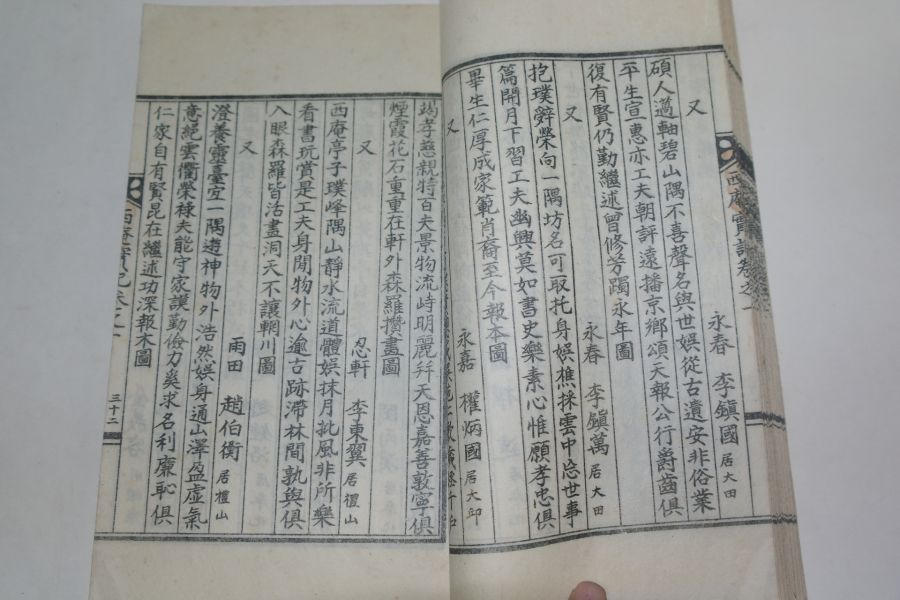 西庵實記卷之一
又 永春 李鎭國 居大田
碩人薖軸碧山隅不喜聲名與世娛從古遺安非俗業
平生宣惠亦工夫朝評遠播京鄕頌天報公行爵齒俱
復有賢仍勤繼述曾修芳躅永年圖
又 永春 李鎭萬 居大田
抱璞辭榮向一隅坊名可取托身娛樵採雲中忘世事
篇開月下習工夫幽興莫如書史樂素心惟願孝忠俱
畢生仁厚成家範肖裔至今報本圖
又 永嘉 權炳國 居大邱
竭孝慈親特百夫景物流峙明麗幷天恩嘉善敦寧俱
煙霞花石重重在軒外森羅攢畫圖
又 忍軒 李東翼 居禮山
西庵亭子璞峰隅山靜水流道體娛抹月批風非所樂
看書玩賞是工夫身閒物外心逾古跡滯林間孰與俱
入眼森羅皆活畫洞天不讓輞川圖
又 雨田 趙伯衡 居禮山
澄養靈臺空一隅遊神物外浩然娛身通山澤盈虛氣
意絕雲衢榮祿夫能守家謨勤儉力奚求名利廉恥俱
仁家自有賢昆在繼述功深報本圖
西庵實記卷之一 三十二